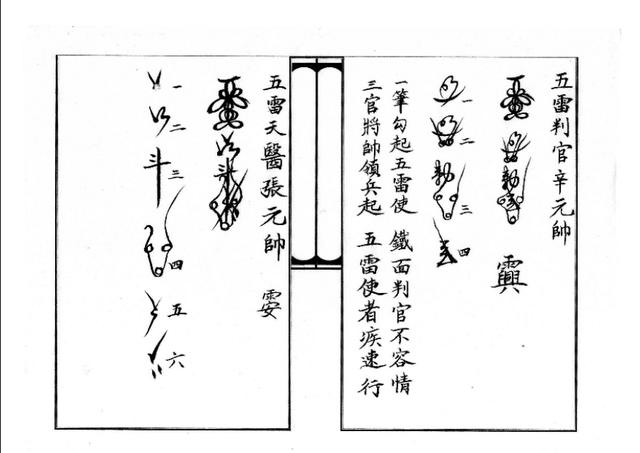 五雷判官辛元帥
勅
一
二
勅
三
四
一筆勾起五雷使 鐵面判官不容情
三官將帥領兵起 五雷使者疾速行
五雷天醫張元帥
斗
一
二
斗 三
四
五
六